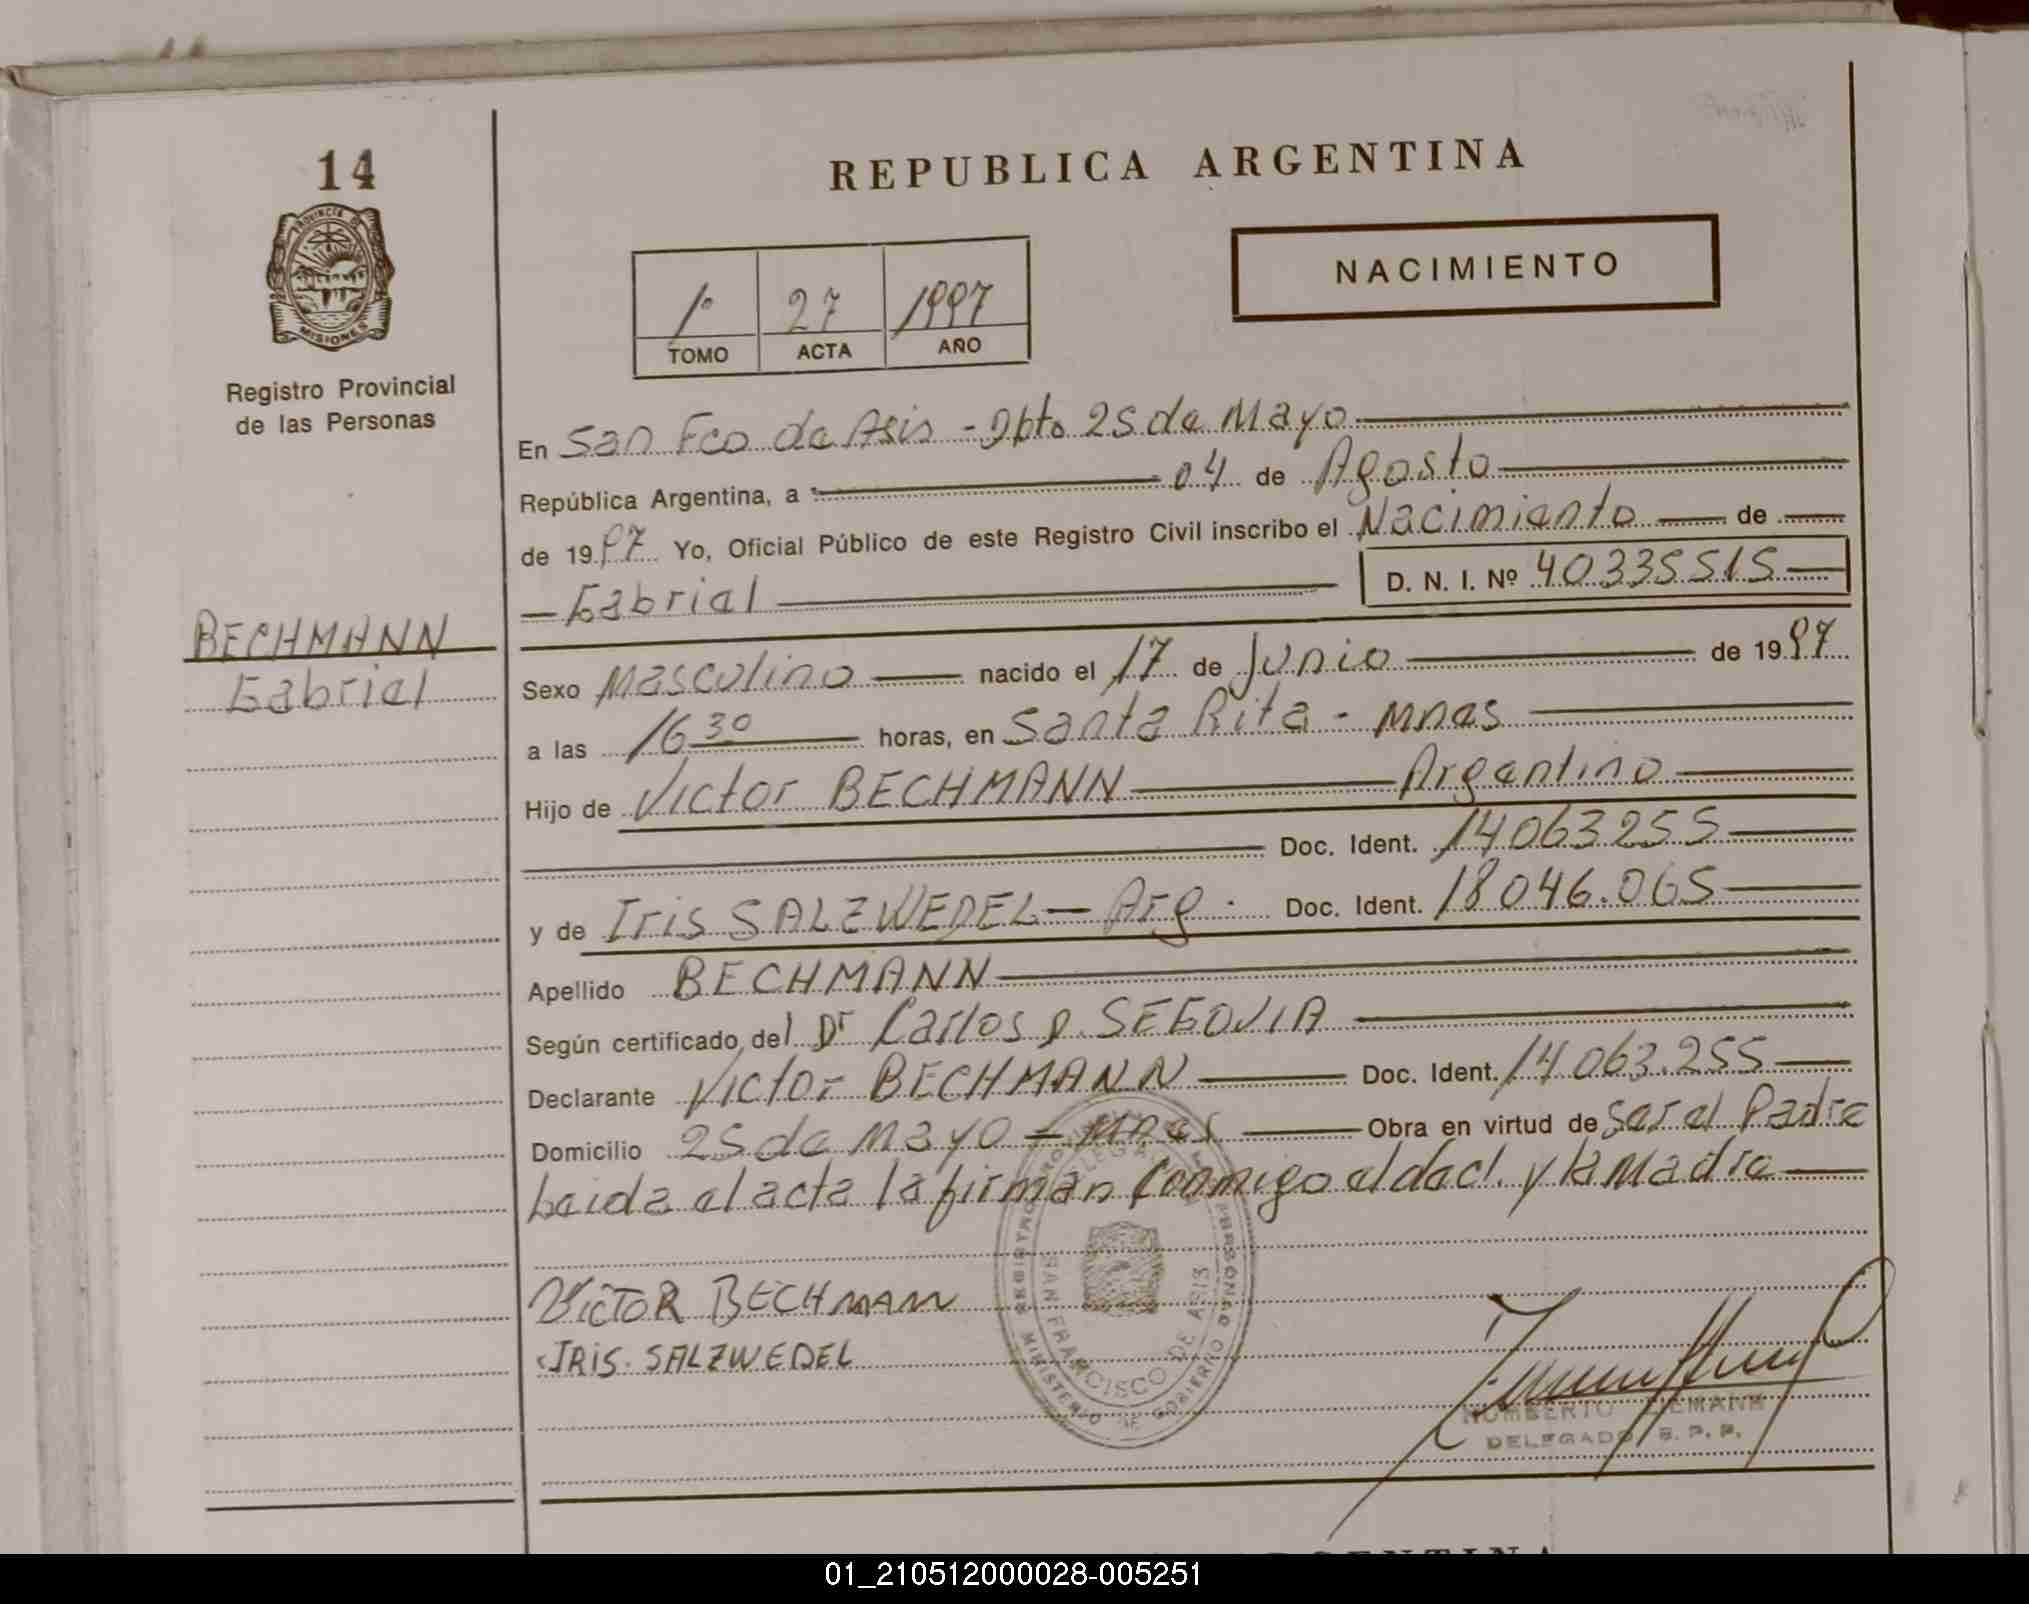 14
PROVINCIA DE
MISIONES
Registro Provincial
de las Personas
BECHMANN
Gabriel
REPUBLICA ARGENTINA
NACIMIENTO
1º 27 1997
TOMO ACTA AÑO
En San Fco de Asis - Dpto 25 de Mayo
República Argentina, a 04 de Agosto
de 1997 Yo, Oficial Público de este Registro Civil inscribo el Nacimiento de
Gabriel D. N. I. Nº 40335515
Sexo Masculino nacido el 17 de Junio de 1997
a las 16 30 horas, en Santa Rita - Mnes
Hijo de Victor BECHMANN Argentino
Doc. Ident. 14063255
y de Iris SALZWEDEL - Arg. Doc. Ident. 18046.065
Apellido BECHMANN
Según certificado del Dr Carlos D. SEGOVIA
Declarante Victor BECHMANN Doc. Ident. 14063.255
Domicilio 25 de Mayo - Mnes Obra en virtud de Ser el Padre
Leida el acta la firman Conmigo el decl. y la Madre
REGISTRO PROVINCIAL DE LAS PERSONAS
MINISTERIO DE GOBIERNO
SAN FRANCISCO DE ASIS
VICTOR BECHMANN
IRIS. SALZWEDEL
HUMBERTO
DELEGADO R. P. P.
01_210512000028-005251